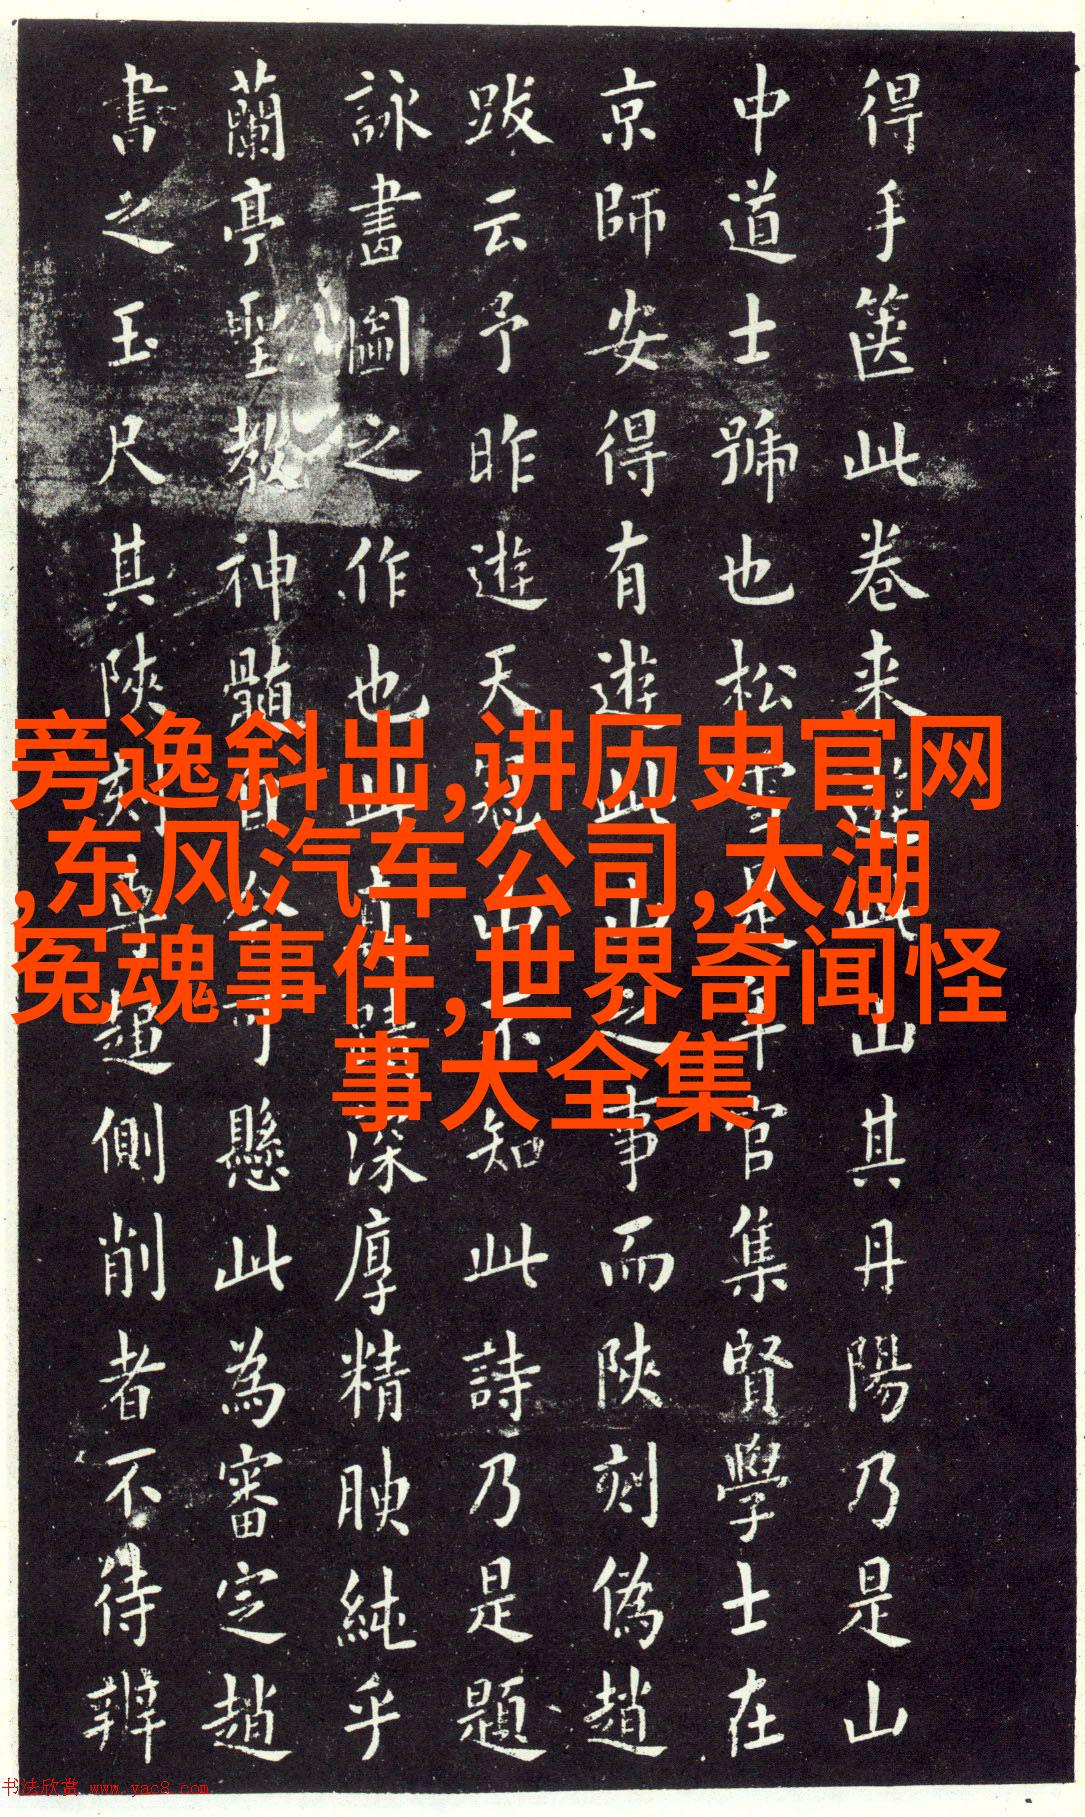 得手箧此卷来遊此山其丹陽乃是山
中道士號也松雪是年官集賢學士在
京師安得有遊此山之事而陝刻偽趙
跋云予昨遊天冠山不知此詩乃是題
詠畫圖之作也此深厚精腴純乎
蘭亭聖教神髓可懸此為審定趙
書之玉尺其陝刻專趨側削者不待辨
旁逸斜出,讲历史官网
,东风汽车公司,太湖
冤魂事件,世界奇闻怪
事大全集
书法欣赏 www.yac8.com